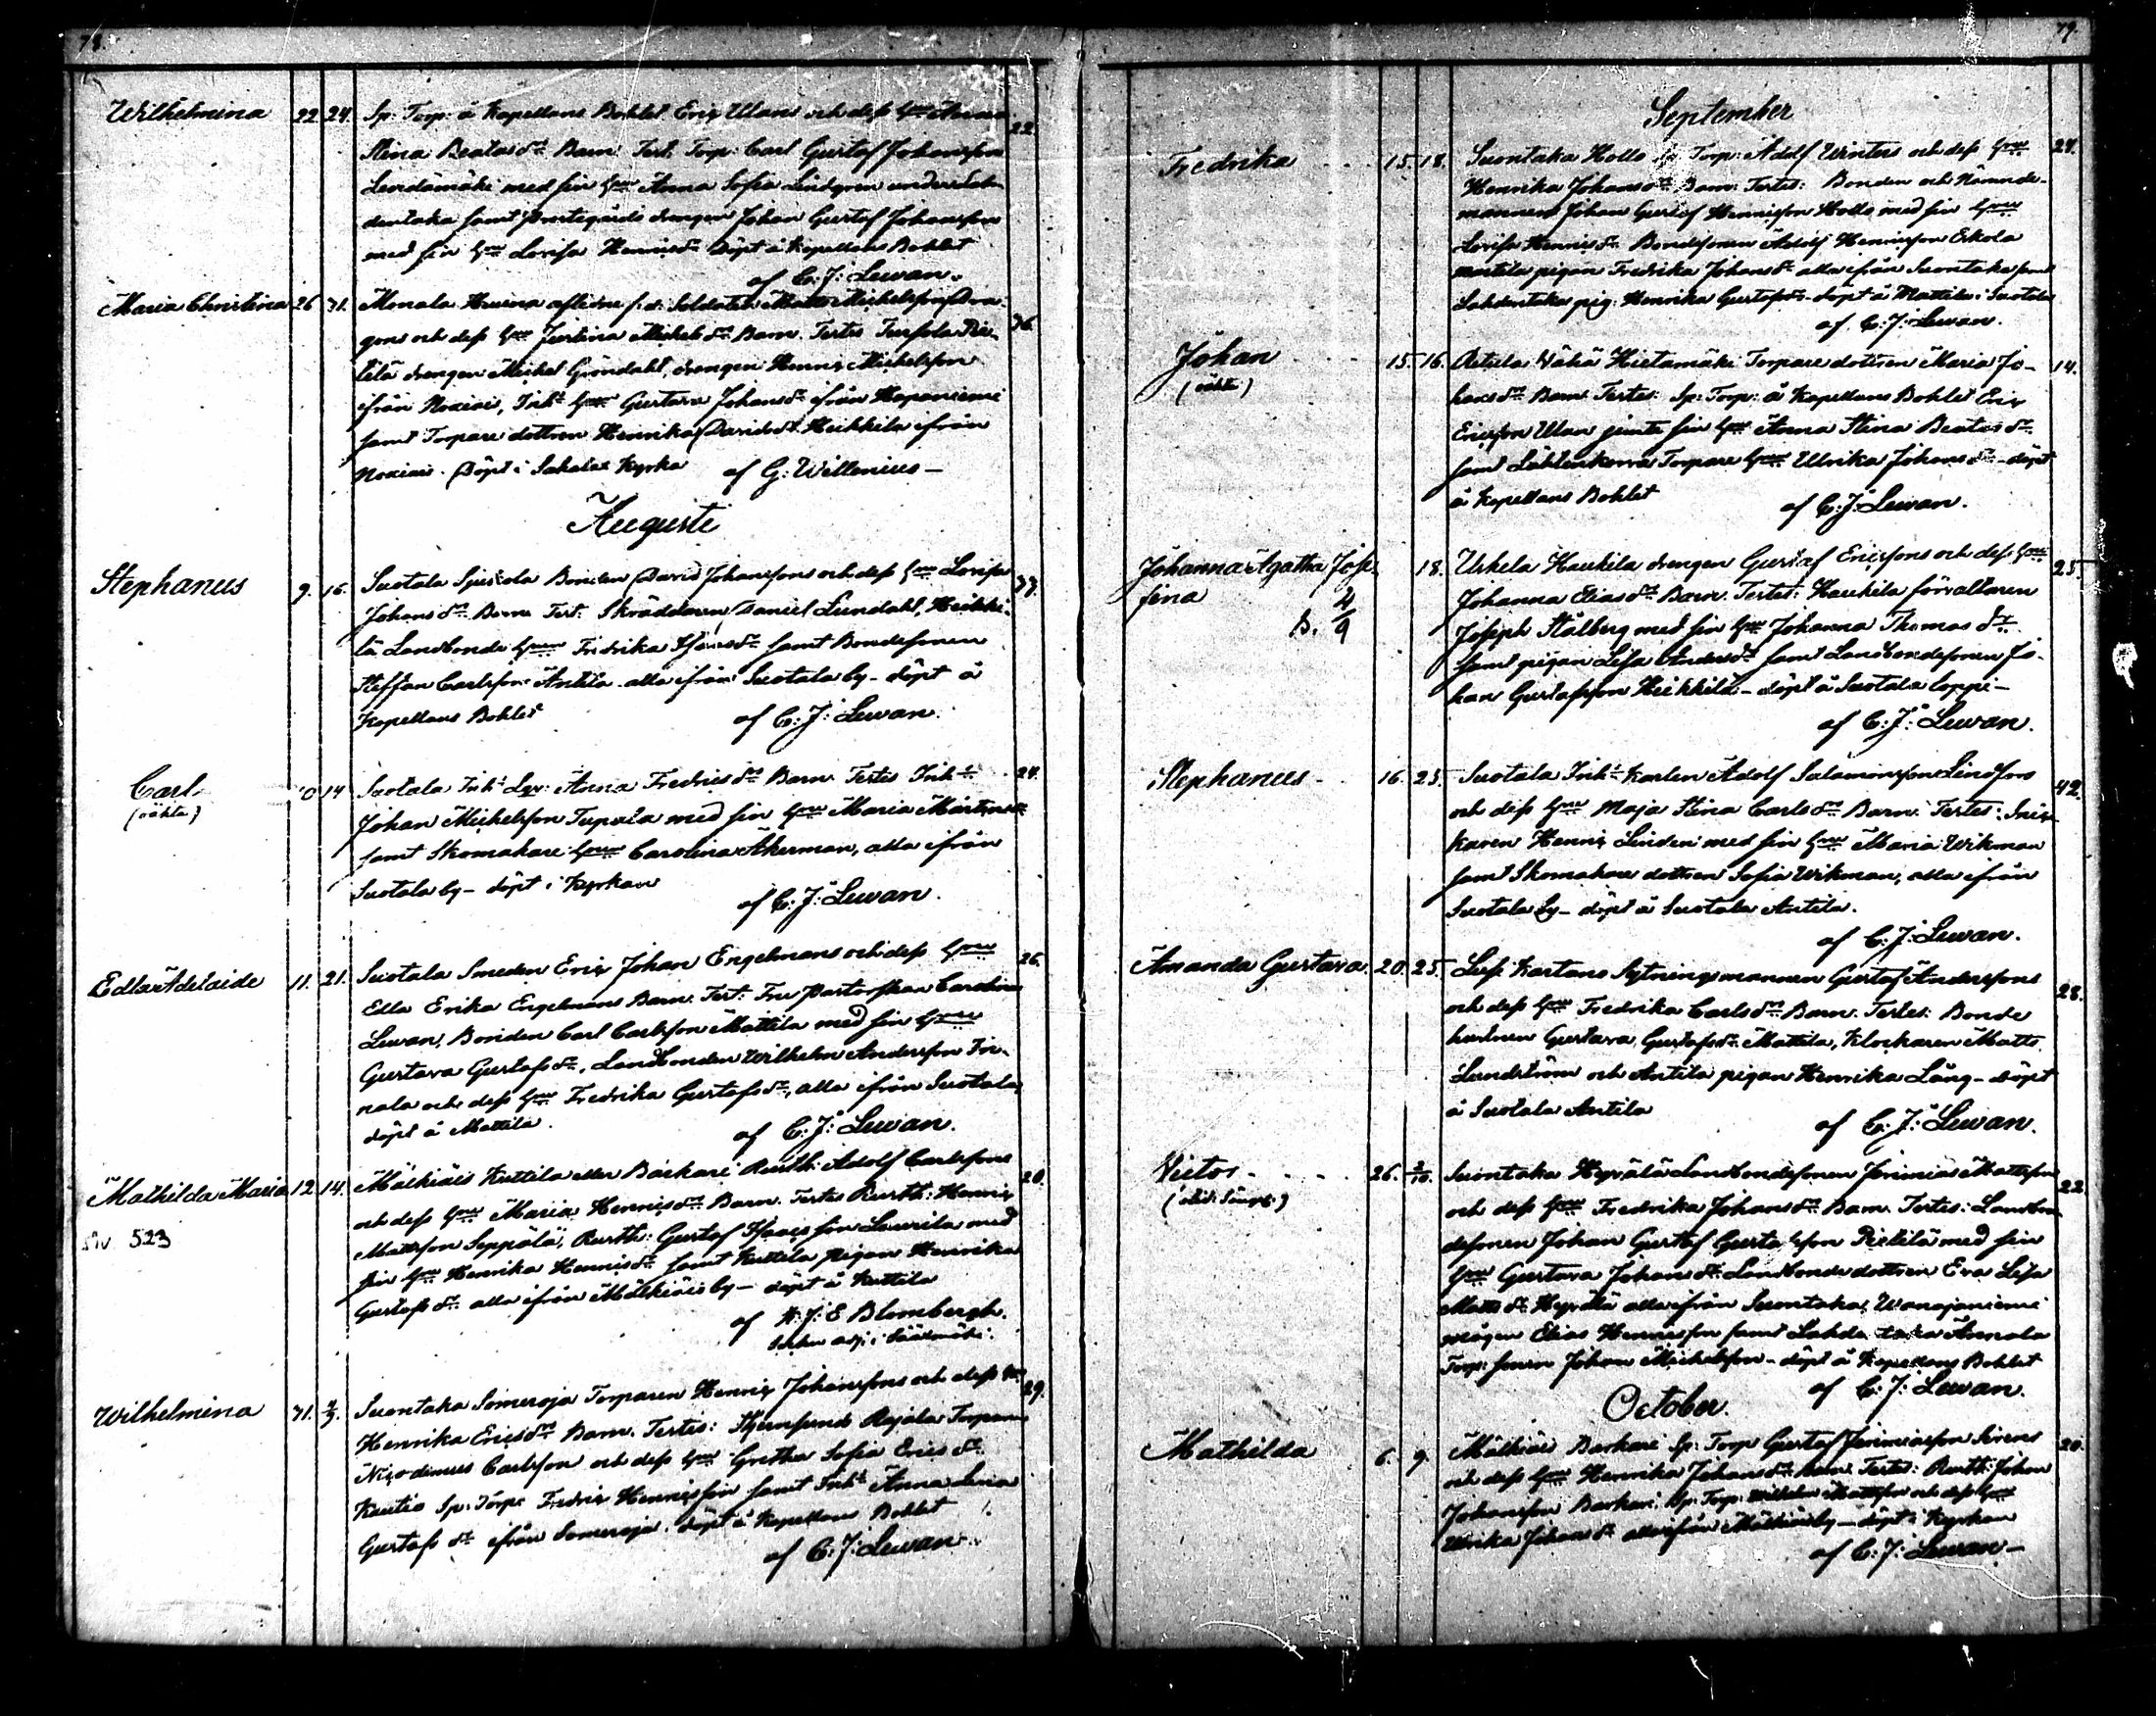 79.
Wilhelmina 22. 24. Sp: Torp: å Kapellans Bohlet Eric Ulans och dess hu Anna 22.
Stina Beatas dr Barn. Test. Torp: Carl Gustaf Johansson
med sin hu Anna Sofia Lindgren under
samt prestegårds drengen Johan Gustaf Johansson
med sin hu Lovisa Henricsdr Döpt å Kapellans Bohlet
af C: J: Lewan.
Maria Christina 26 31. Monala aflidne f. d. Soldaten Matts Michelsson Dra- 36.
gons och dess hu Justina Michels dr Barn. Testes Pie-
tilä drengen Michel Gröndahl, drengen Henric Michelsson
ifrån Noxiais, Inhs hu Gustava Johans dr ifrån Haponiemi
samt Torpare dottren Henrika Davids dr Heikkilä ifrån
Noxiais. Döpt i Sahalax Kyrka af G: Willenius –
Augusti
Stephanus 9. 16. Suotala Sjuskola Bonden David Johanssons och dess hu Lovisa 37.
Johans dr Barn Test. Skräddaren Daniel Lundahl, Heikki-
lä Landbonde hu Fredrika dr samt Bondesonen
Steffan Carlsson Antila alla ifrån Suotala by – döpt å
Kapellans Bohlet af C: J: Lewan.
Carl 10 14 Suotala Inhs Anna Fredrics dr Barn. Testes Inhs 24.
(oäkta) Johan Michelsson Tupala med sin hu Maria Mårtens dr
samt Skomakare hu Carolina Åkerman, alla ifrån
Suotala by – döpt i Kyrkan
af C: J: Lewan.
Edla Adelaide 11. 21. Suotala Smeden Eric Johan Engelmans och dess hu 26.
Edla Erika Engelmans Barn. Test: Fru Pastorskan Carolina
Lewan, Bonden Carl Carlsson Mattila med sin hu
Gustava Gustafs dr, Landbonden Wilhelm Andersson In-
nala och dess hu Fredrika Gustafs dr, alla ifrån Suotala,
döpt å Mattila.
af C: J: Lewan.
Mathilda Maria 12. 14. Mälkiäis Kuttila eller Backari Rusth: Adolf Carlssons 20.
och dess hu Maria Henrics dr Barn. Testes Rusth: Henric
siv. 523 Mattsson Seppälä, Rusth: Gustaf Isaacsson Laurila med
sin hu Henrika Henrics dr samt Kuttila pigan Henrika
Gustafs dr alla ifrån Mälkiäis by – döpt å Kuttila
af K: J: E Blombergh.
adj: i Sääxmäki.
Wilhelmina 31. 4/9. Suontaka Someroja Torparen Henric Johanssons och dess hu 29.
Henrika Erics dr Barn. Testis: Stjernsund Rajala Torparen
Nicodimus Carlsson och dess hu Gretha Sofia Erics dr
Kautio Sp: Torp: Fredric Henricsson samt Inhs Anna Lena
Gustafs dr ifrån Someroja. döpt å Kapellans Bohlet
af C: J: Lewan
79.
September
Fredrika 15. 18. Suontaka Hollo Sp: Torp: Adolf Winters och dess hu 24.
Henrika Johans dr Barn: Testes: Bonden och Nämnde-
mannen Johan Gustaf Henricsson Hollo med sin hu
Lovisa Henrics dr Bondesonen Adolf Henricsson Eskola
pigan Fredrika Johans dr alla ifrån Suontaka samt
Lahdentaka pig: Henrika Gustafs dr – döpt å Mattila i Suotala
af C: J: Lewan.
Johan 15. 16. Wähä Hietamäki Torpare dottren Maria Jo- 14.
(oäkta) hans dr Barn. Testes: Sp: Torp: å Kapellans Bohlet Eric
Ericsson Ulan jemte sin hu Anna Stina Beatas dr
samt Torpare hu Ulrika Johans dr – döpt
å Kapellans Bohlet af C: J: Lewan.
Johanna Agatha Jose- 18. Uskela Haukila drengen Gustaf Ericssons och dess hu 25.
fina Johanna Elias dr Barn. Testes: Haukila förvaltaren
D. 4/9 Joseph Stålberg med sin hu Johanna Thomas dr
samt pigan Lisa Anders dr samt Landbondesonen Jo-
han Gustafsson Heikkilä – döpt å Suotala loppi –
af C: J: Lewan.
Stephanus 16. 25. Suotala Inhs Karlen Adolf Salamonsson Lindfors 42.
och dess hu Maja Stina Carls dr Barn. Testes: Snic-
karen Henric Linden med sin hu Maria Wikman
samt Skomakare dottren Sofia Wikman, alla ifrån
Suotala by – döpt å Suotala Antila.
af C: J: Lewan.
Amanda Gustava. 20. 25. Kartans Sytningsmannen Gustaf Anderssons 28.
och dess hu Fredrika Carls dr Barn. Testes: Bonde
hustrun Gustava Gustafs dr Mattila, Klockaren Matts
Lundström och Antila pigan Henrika Lång – döpt
å Suotala Antila af C: J: Lewan.
Victor 26. 2/10. Suontaka Hyrälä Landbondesonen Jeremias Mattsson 22.
och dess hu Fredrika Johans dr Barn. Testes: Landbon-
desonen Johan Gustaf Gustafsson Pietilä med sin
hu Gustava Johans dr Landbonde dottren Eva Lisa
Matts dr Hyrälä alla ifrån Suontaka, Wanajaniemi
Elias Henricsson samt Lahdentaka Annala
Torp: sonen Johan Michelsson – döpt å Kapellans Bohlet
af C: J: Lewan.
October.
Mathilda 6. 9. Mälkiäis Backari Sp: Torp: Gustaf Jeremiasson Sirens 20.
och dess hu Henrika Johans dr Barn. Testes: Rusth: Johan
Johansson Backari, Sp: Torp: Wilhelm Mattsson och dess hu
Ulrika Johans dr alla ifrån Mälkiäis by – döpt i Kyrkan
af C: J: Lewan –